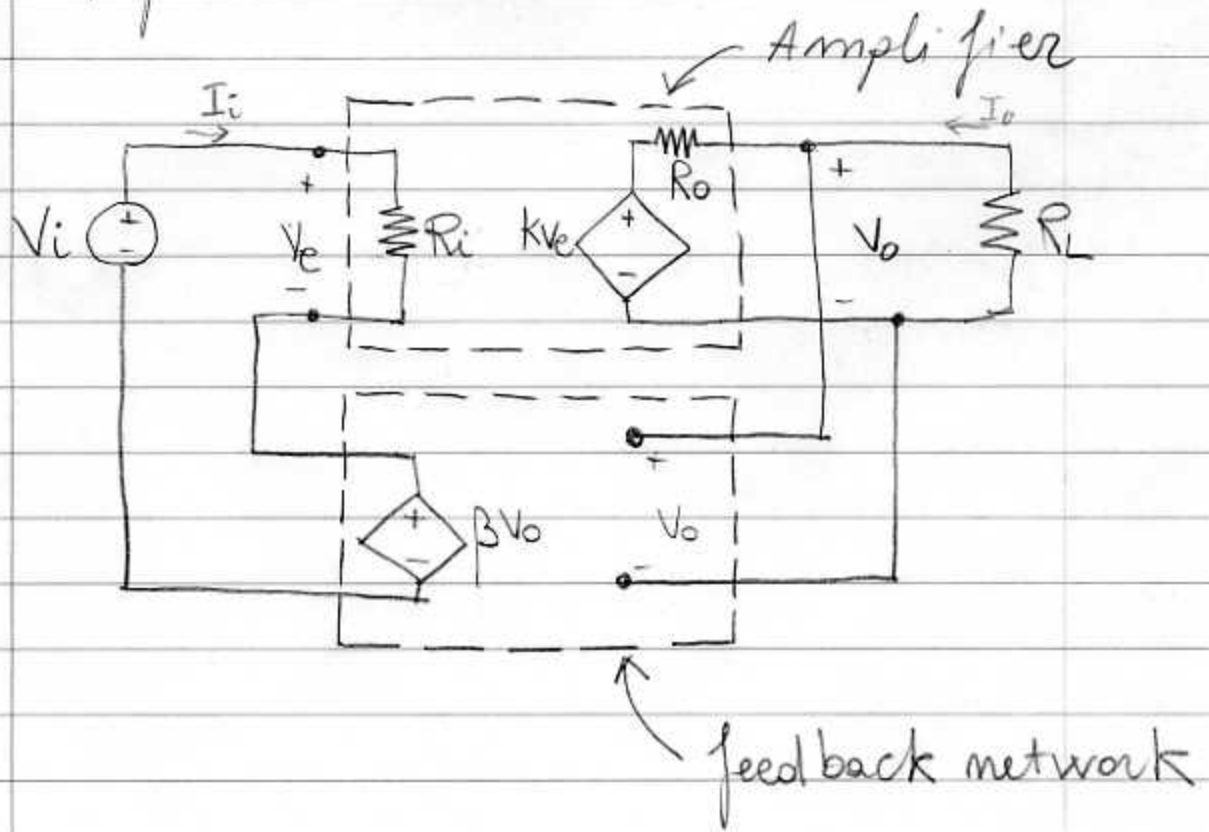 Amplifier
Ii
Io
+
Ro
+
Vi
+
-
Ve
Ri
kVe
+
-
Vo
RL
-
-
+
+
-
βVo
Vo
-
feedback network